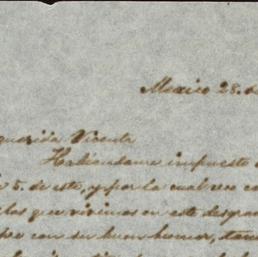 Mexico 28. de
querida Vicenta
Habiendome impuesto
5. de este, y por la cual veo con
los que vivimos en este desgra
con su buen humor, tan